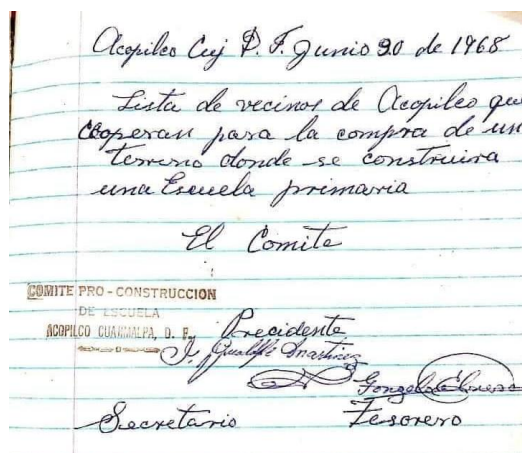 Acopilco Cuj D. F. Junio 30 de 1968
Lista de vecinos de Acopilco que
cooperan para la compra de un
terreno donde se construira
una Escuela primaria
El Comite
COMITE PRO-CONSTRUCCION
DE ESCUELA
ACOPILCO CUAJIMALPA, D. F.
Precidente
J. Martinez
Gonzalo
Secretario Tesorero